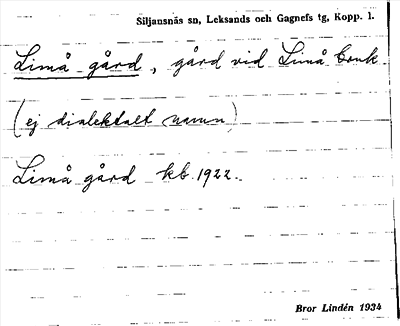 Siljansnäs sn, Leksands och Gagnefs tg, Kopp. l.
Limå gård, gård vid Limå bruk.
(ej dialektalt namn)
Limå gård kb. 1922.
Bror Lindén 1934